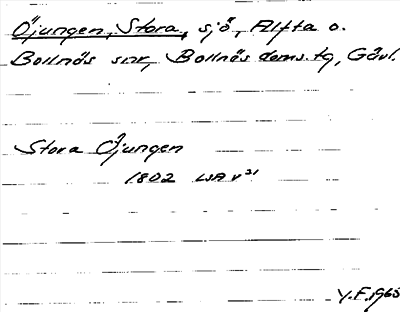 Öjungen, Stora, sjö, Alfta o.
Bollnäs snr, Bollnäs doms.tg, Gävl.
Stora Öjungen
1802 LSA v³¹
Y.F. 1965